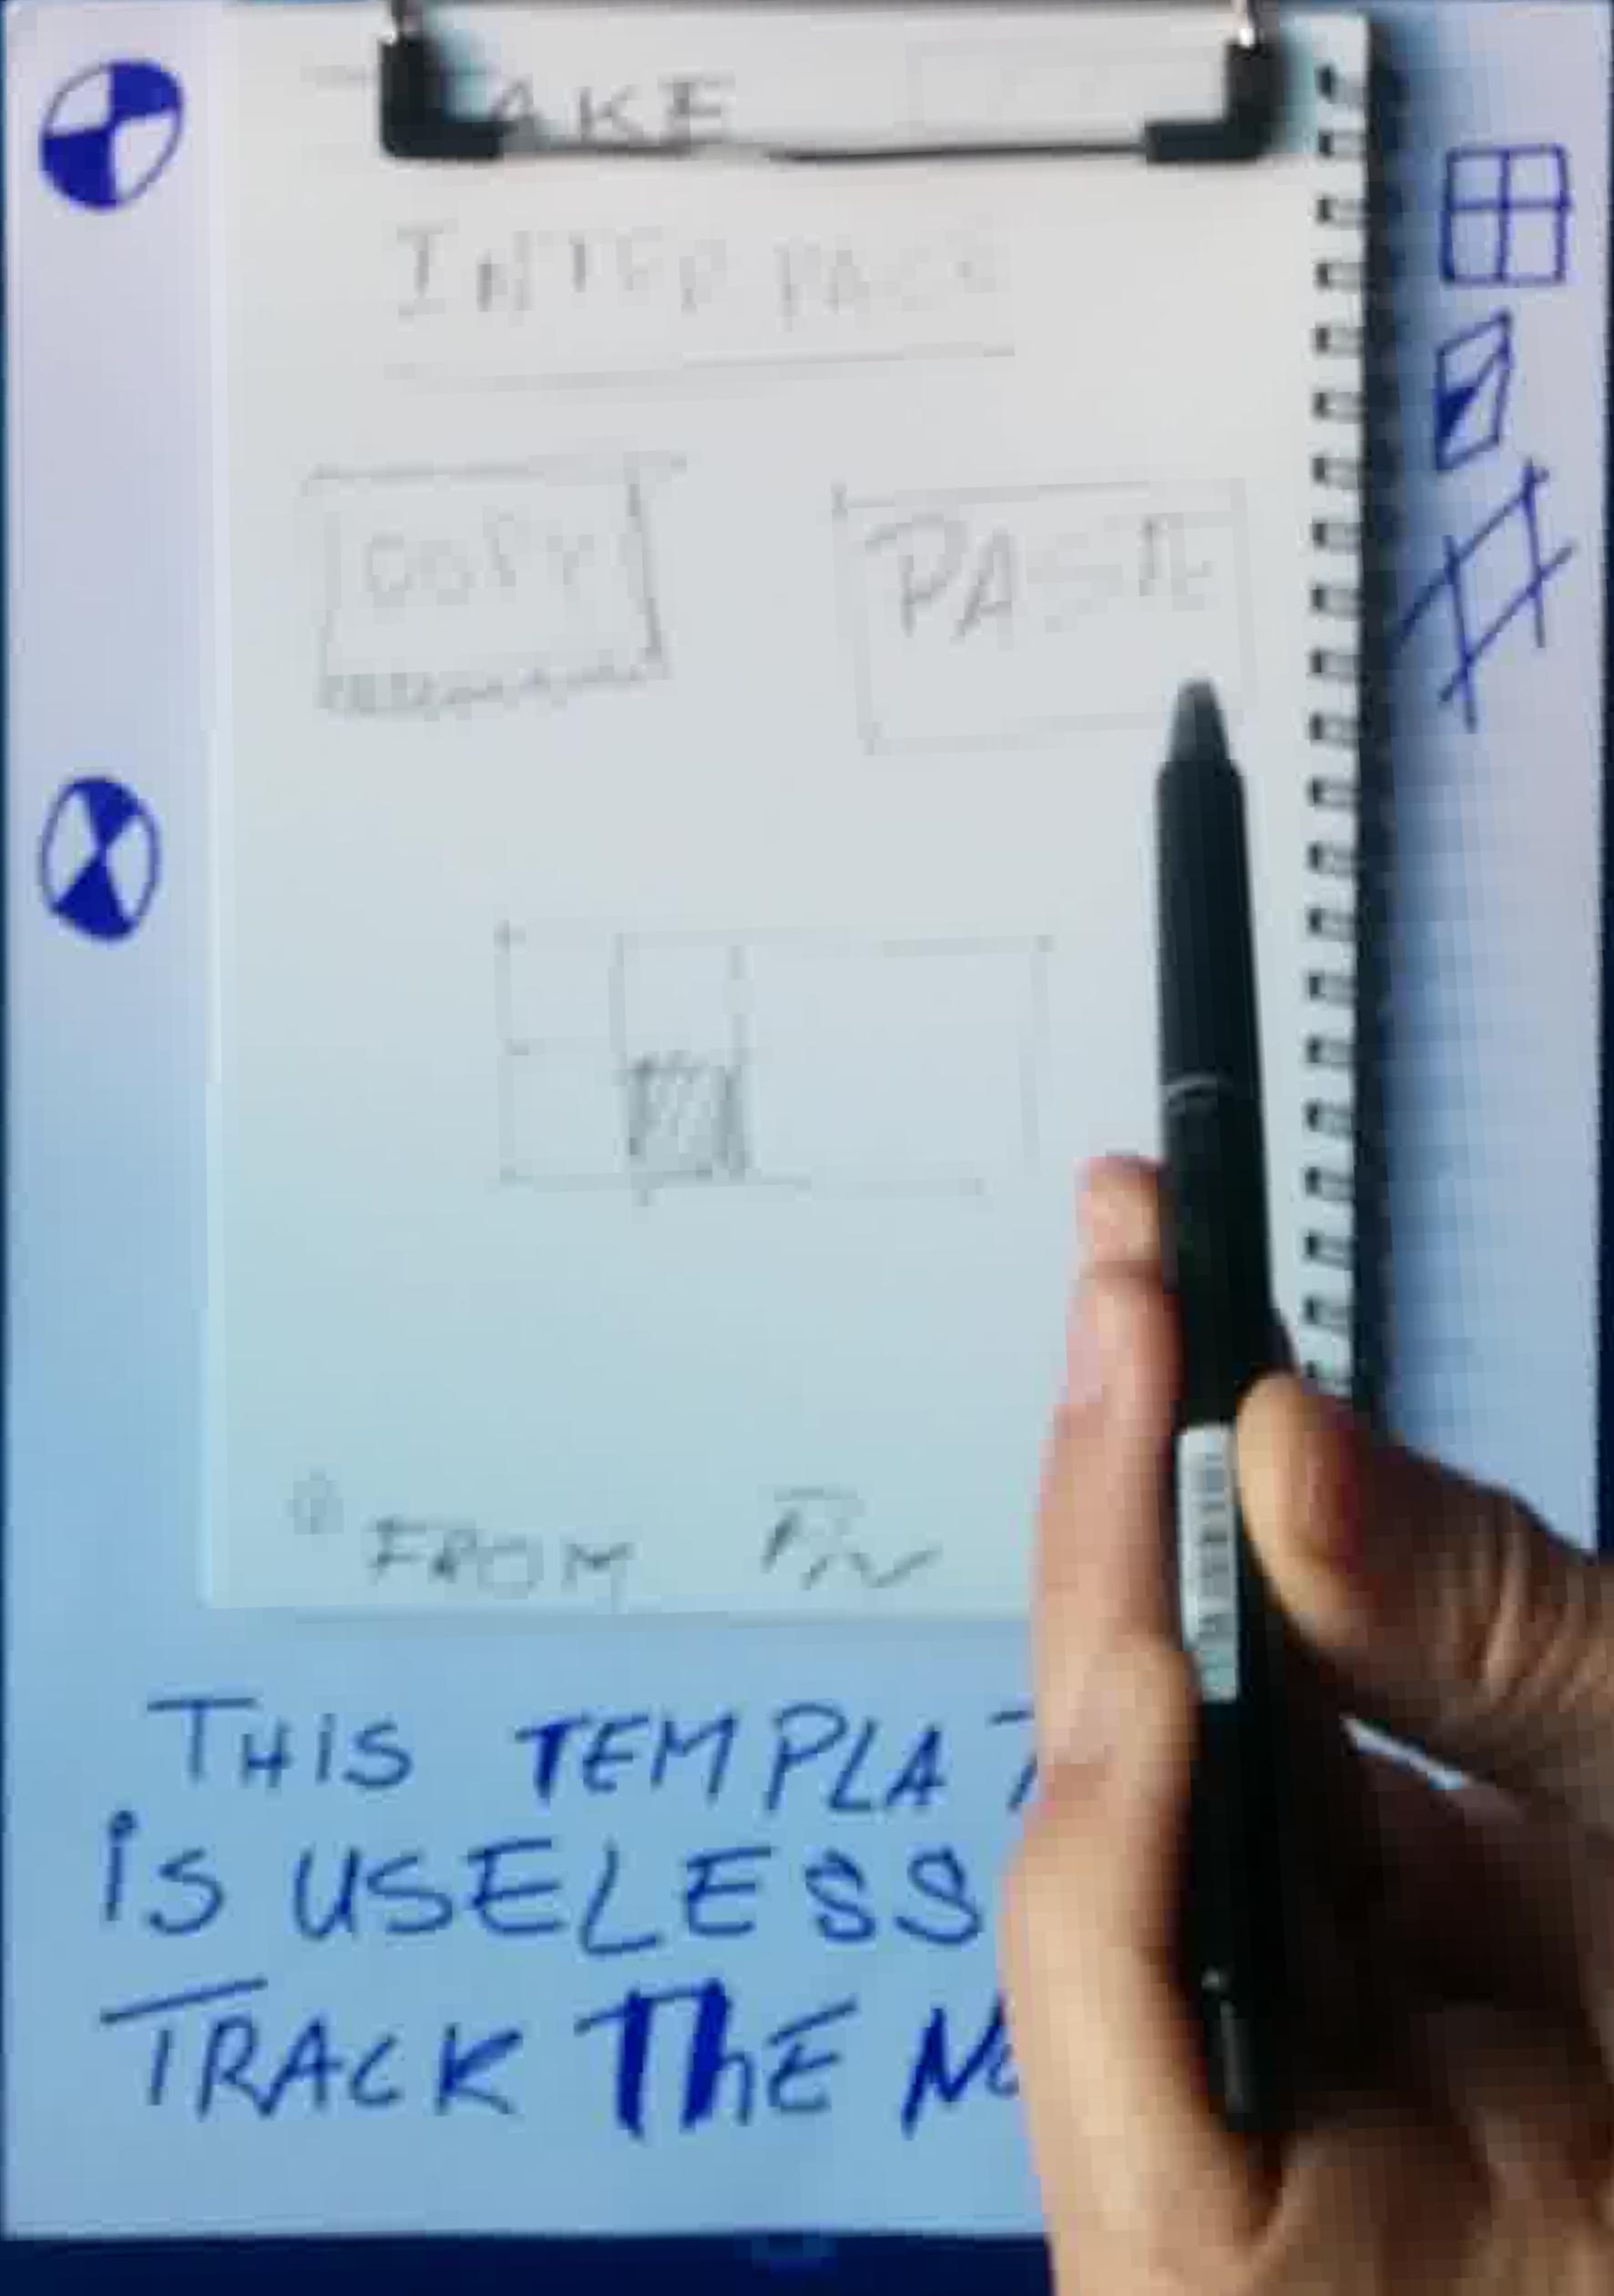 AKE
INTERFACE
COPY PASTE
FROM
THIS TEMPLAT
is USELESS
TRACK ThE No